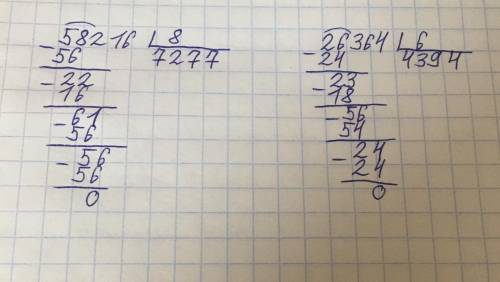 58216 8
- 56 7277
22
- 16
61
- 56
56
- 56
0
26364 6
- 24 4394
23
- 18
56
- 54
24
- 24
0